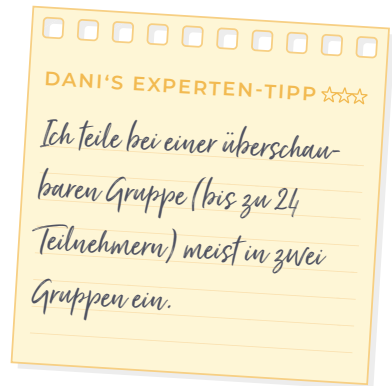 DANI‘S EXPERTEN-TIPP
Ich teile bei einer überschau-
baren Gruppe (bis zu 24
Teilnehmern) meist in zwei
Gruppen ein.